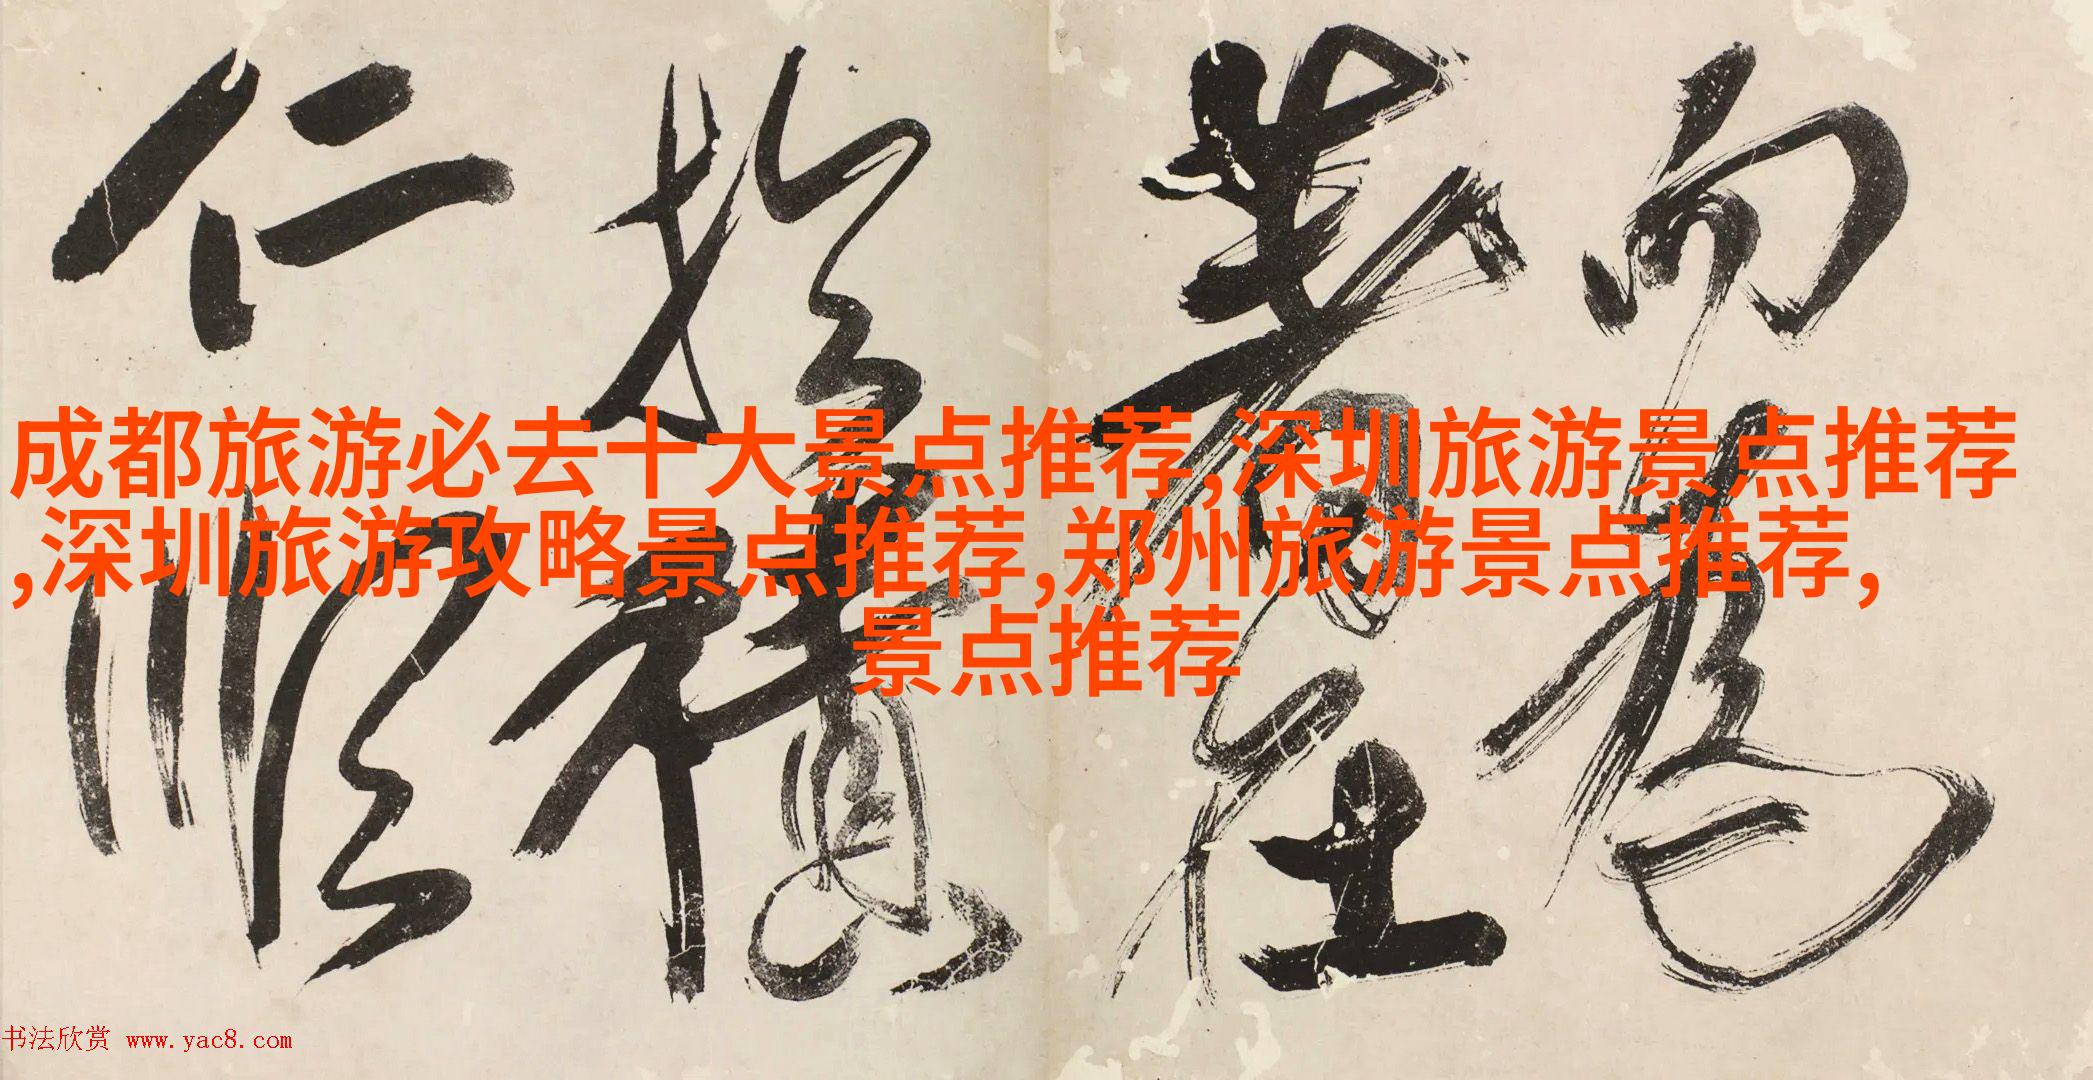 成都旅游必去十大景点推荐,深圳旅游景点推荐
,深圳旅游攻略景点推荐,郑州旅游景点推荐,
景点推荐
而为
善 在
於积
仁顺
书法欣赏 www.yac8.com